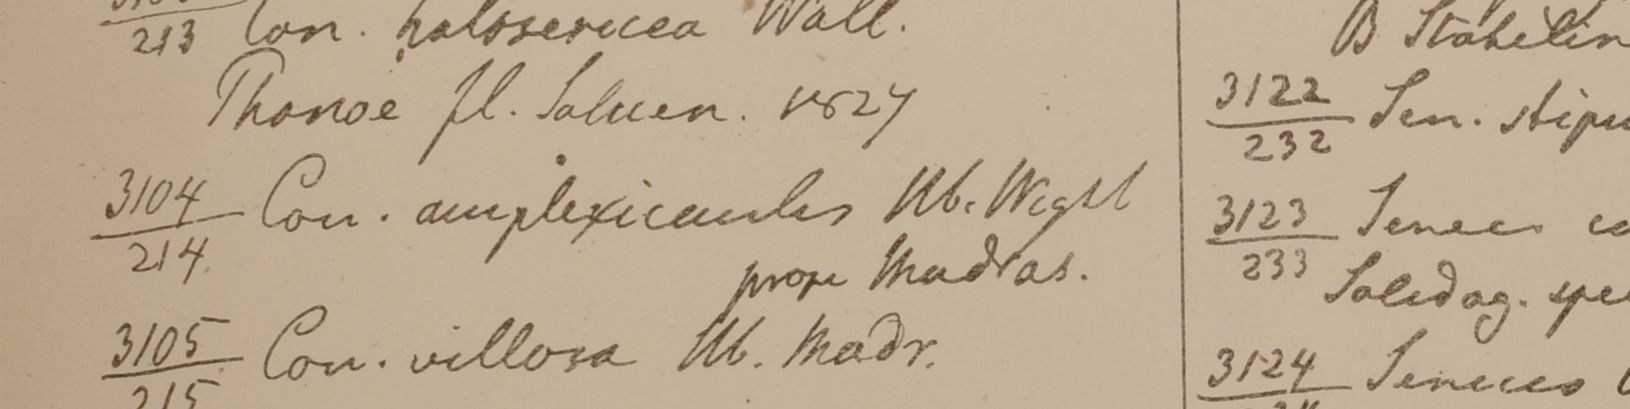 213 Con. holosericea Wall.
Thanoe fl. Saluen. 1827
3104
214. Con. amplexicaulis Hb. Wight
prope Madras.
3105
215 Con. villosa Hb. Madr.
B Stahelin
3122
232 Sen. stipu
3123
233 Senec
Solidag. spe
3124 Senecio